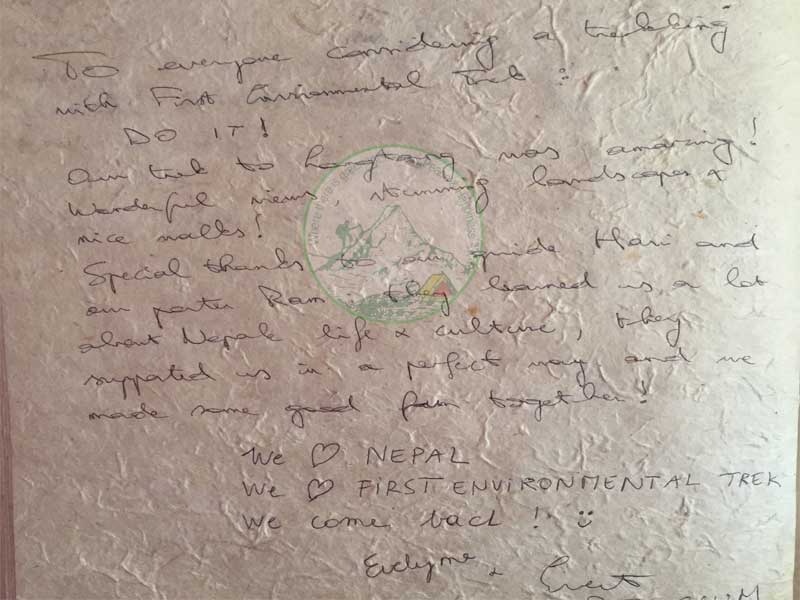 To everyone considering a trekking
with First Environmental Trek :
DO IT!
Our trek to Langtang was amazing!
Wonderful views, stunning landscapes &
nice walks!
Special thanks to our guide Hari and
our porter Ram : they learned us a lot
about Nepali life & culture, they
supported us in a perfect way and we
made some good fun together!
We ♡ NEPAL
We ♡ FIRST ENVIRONMENTAL TREK
We come back! :)
Evelyne &